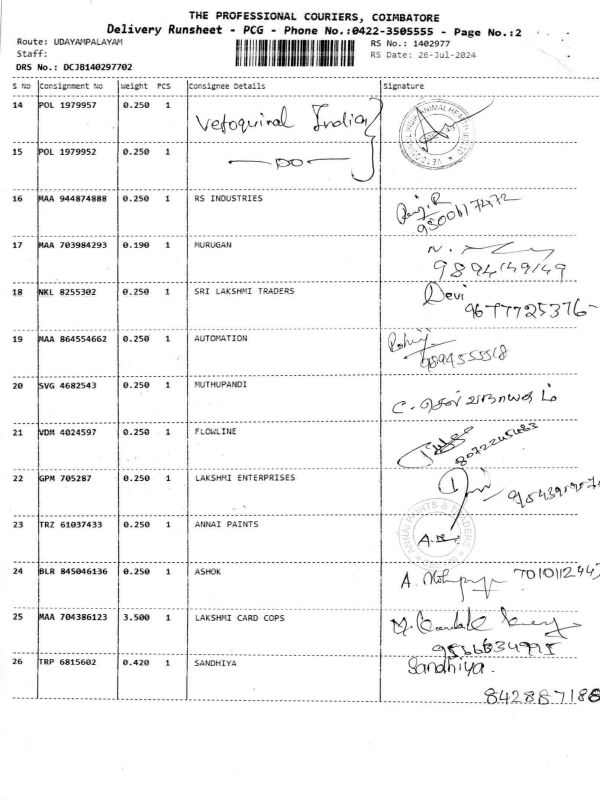 THE PROFESSIONAL COURIERS, COIMBATORE
Delivery Runsheet - PCG - Phone No.:0422-3505555 - Page No.:2
Route: UDAYAMPALAYAM
RS No.: 1402977
Staff:
RS Date: 26-Jul-2024
DRS No.: DCJB140297702
S No Consignment No Weight PCS Consignee Details Signature
14 POL 1979957 0.250 1 Vetoquinal India
15 POL 1979952 0.250 1 -DO-
16 MAA 944874888 0.250 1 RS INDUSTRIES
9500617472
17 MAA 703984293 0.190 1 MURUGAN
9894149149
18 NKL 8255302 0.250 1 SRI LAKSHMI TRADERS Devi
9677725376-
19 MAA 864554662 0.250 1 AUTOMATION
20 SVG 4682543 0.250 1 MUTHUPANDI
21 VDM 4024597 0.250 1 FLOWLINE
8072245483
22 GPM 705287 0.250 1 LAKSHMI ENTERPRISES
23 TRZ 61037433 0.250 1 ANNAI PAINTS
ANNAI PAINTS & TRADERS
24 BLR 845046136 0.250 1 ASHOK
25 MAA 704386123 3.500 1 LAKSHMI CARD COPS
26 TRP 6815602 0.420 1 SANDHIYA Sandhiya.
842887188